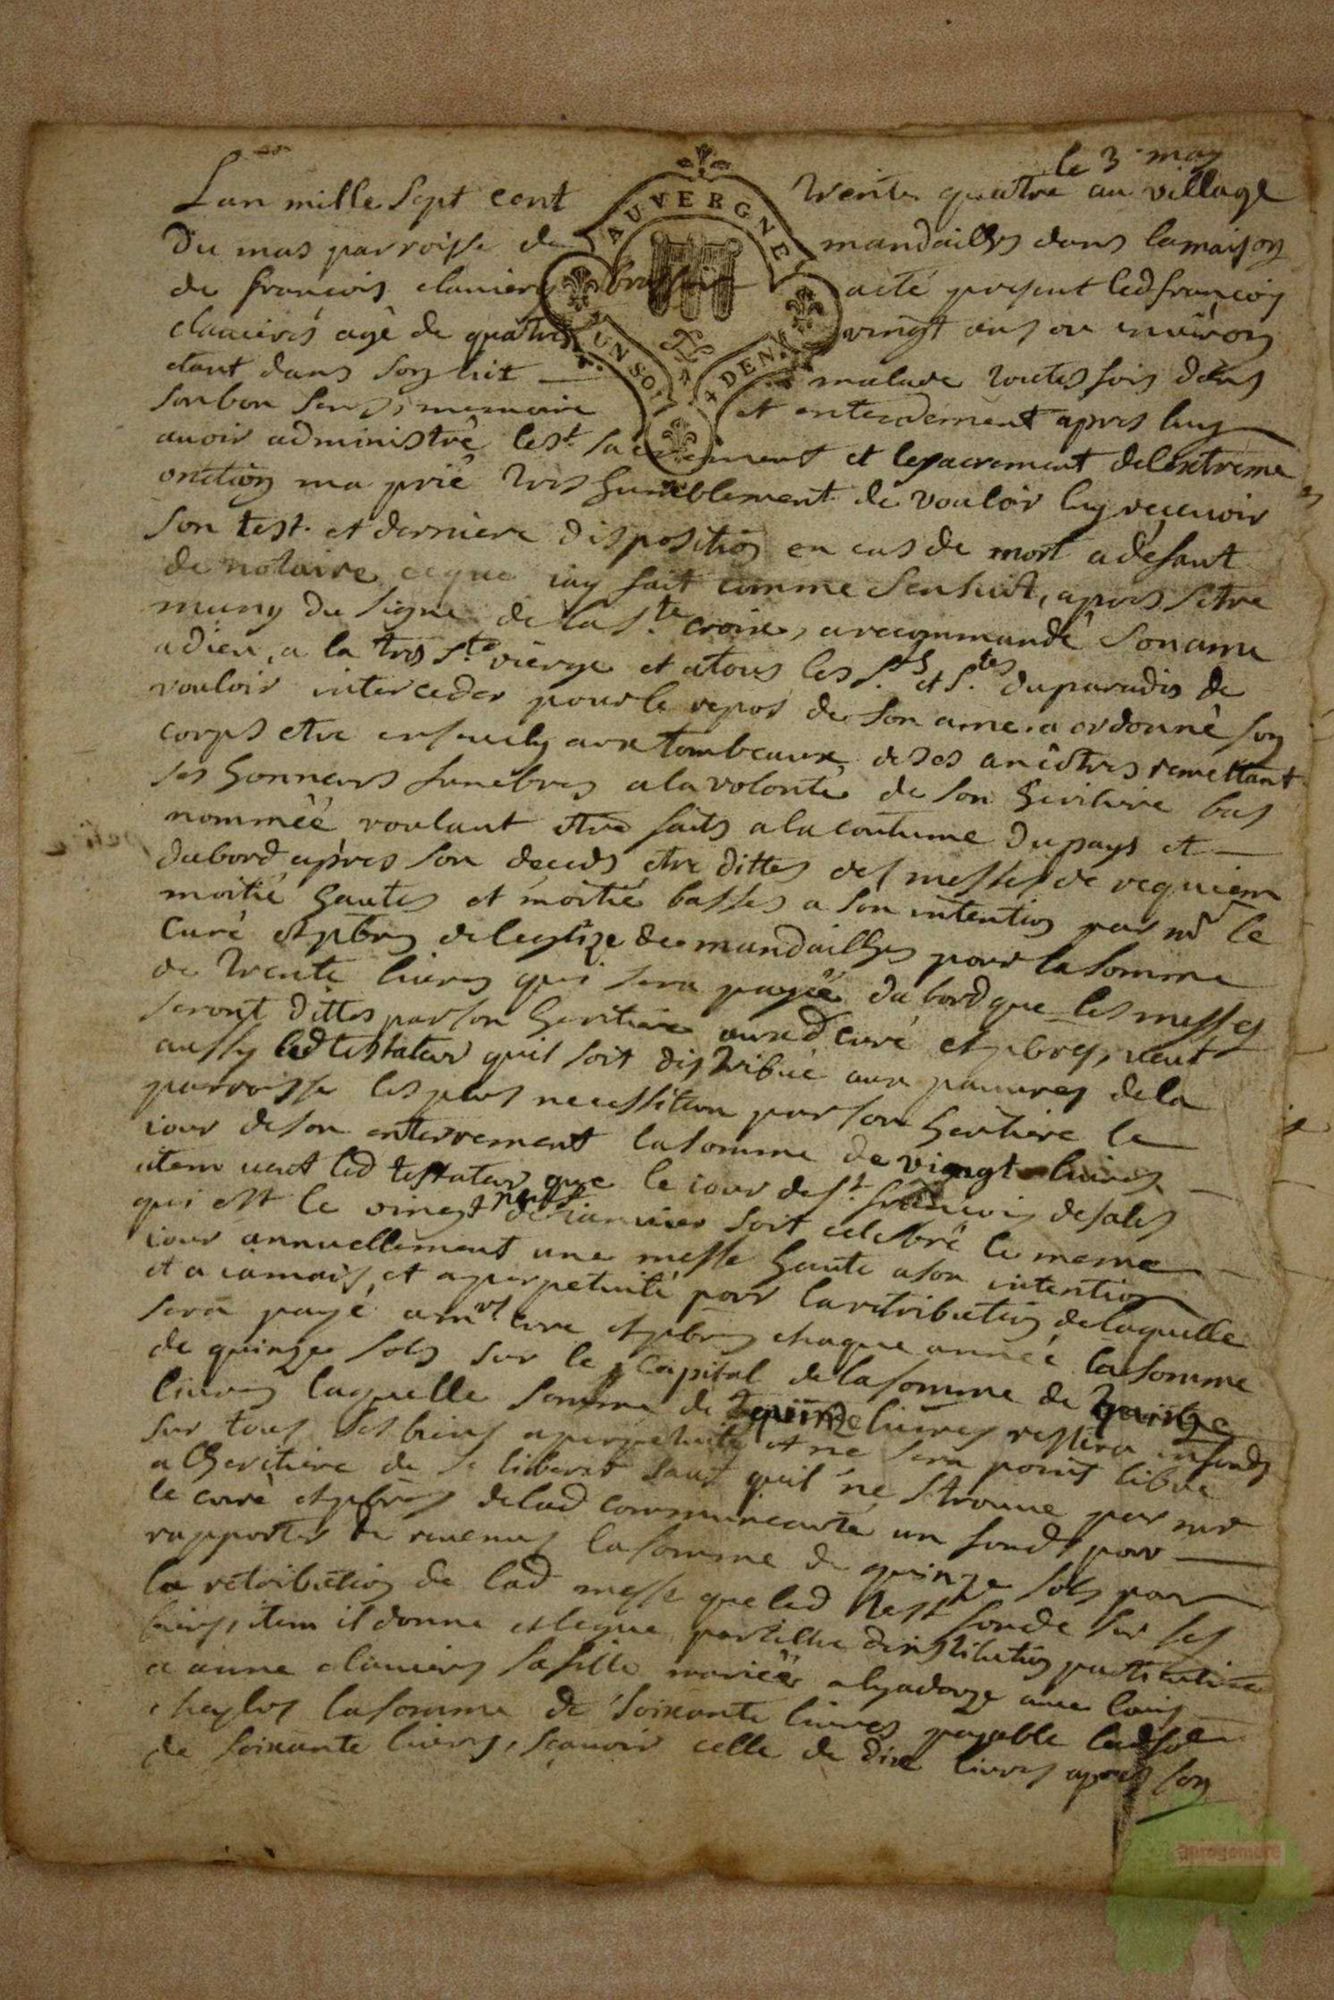 le 3 may
Lan mille sept cent trente quatre au village
du mas parroisse de mandailles dans la maison
de francois clavieres brassier acté présent led francois
clavieres agé de quatre vingt ans ou environ
etant dans son lit malade toutes fois dans
son bon sens, memoire et entendement apres luy
avoir administré le st. sacrement et le sacrement de lextreme
onction ma prié tres humblement de vouloir luy recevoir
son test. et derniere disposition en cas de mort a defaut
de notaire ce que iay fait comme sensuit, apres setre
muny du signe de la ste croix, a recommandé son ame
a dieu, a la tres ste vierge et a tous les sts et stes du paradis de
vouloir interceder pour le repos de son ame. a ordonné son
corps etre ensevely aux tombeaux de ses ancêtres remettant
ses honneurs funebres a la volonté de son heritiere bas
nommée voulant etre faits a la coutume du pays et
dabord apres son deceds etre dittes des messes de requiem
moitié hautes et moitié basses a son intention par mr le
curé et pbres de leglize de mandailles pour la somme
de trente livres qui sera payée dabord que les messes
seront dittes par son heritiere auxd curé et pbres, veut
aussy led testateur quil soit distribué aux pauvres de la
parroisse les plus necessiteux par son heritiere le
iour de son enterrement la somme de vingt livres
item veut led testateur que le iour de st. francois de sales
qui est le vingt neuf de ianvier soit celebré le meme
iour annuellement une messe haute a son intention
et a iamais, et a perpetuité pour la retribution de laquelle
sera payé a mrs curé et pbres chaque année la somme
de quinze sols sur le capital de la somme de quinze
livres laquelle somme de quinze livres restera en fonds
sur tous ses biens a perpetuité et ne sera point libre
a lheritiere de se liberer sauf quil ne se trouve par mr
le curé et pbres de lad communauté un fonds pour
rapporter de revenus la somme de quinze sols pour
la retribution de lad messe que led test. fonde sur ses
biens, item il donne et legue par tiltre dinstitution particuliere
a anne clavieres sa fille mariée a lyadouze avec louis
cheylus la somme de soixante livres payable lad so
de soixante livres, scavoir celle de dix livres apres son
AUVERGNE
UN SO.
DEN.
aprogemere